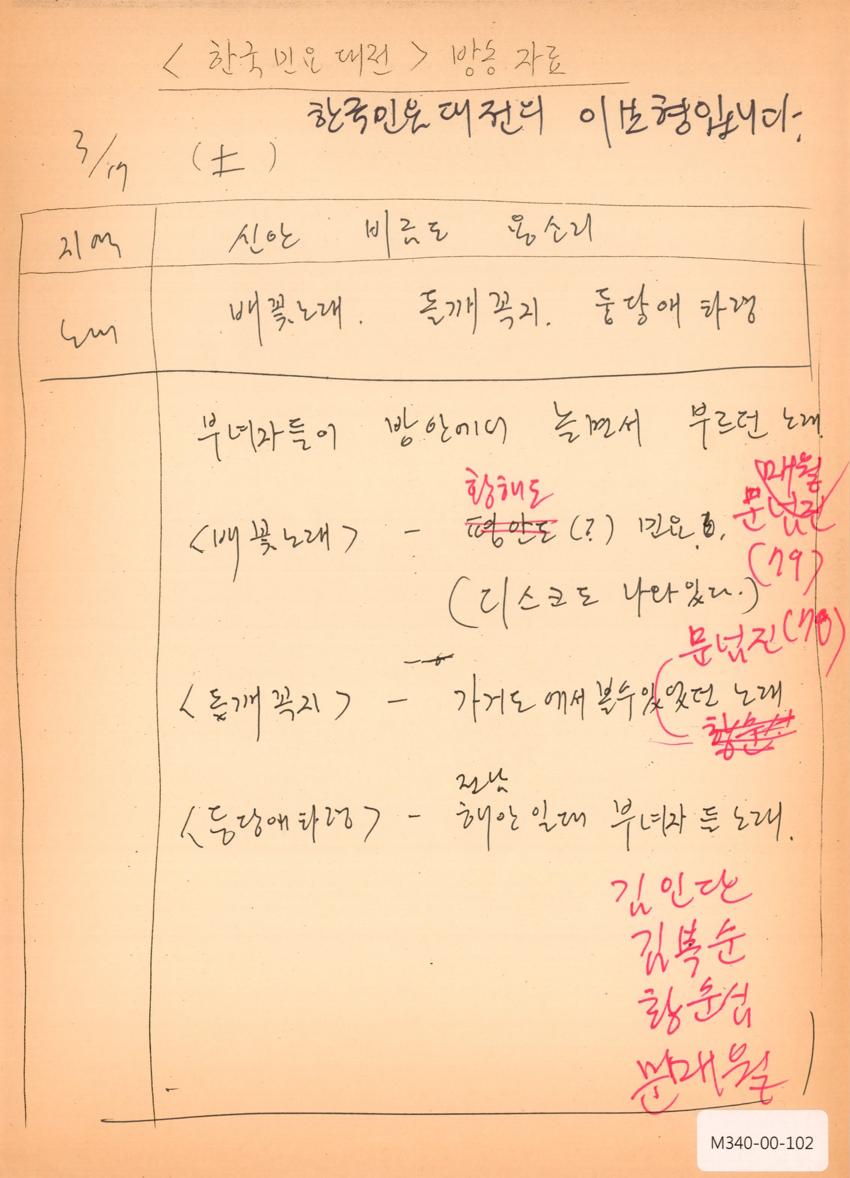 <한국민요대전> 방송자료
한국민요대전의 이보형입니다.
3/19 (土)
지역 신안 비금도 용소리
노래 배꽃노래. 들깨꼭지. 둥당애타령
부녀자들이 방안에서 놀면서 부르던 노래.
<배꽃노래> - 황해도 평안도(?) 민요. 매월 문넙진 (79)
(디스코도 나와있다.)
문넙진(78)
<들깨꼭지> - 가거도에서 볼수있었던 노래
황순섬
<둥당애타령> - 전남 해안일대 부녀자들 노래.
김인단
김복순
황순섬
문매월
M340-00-102